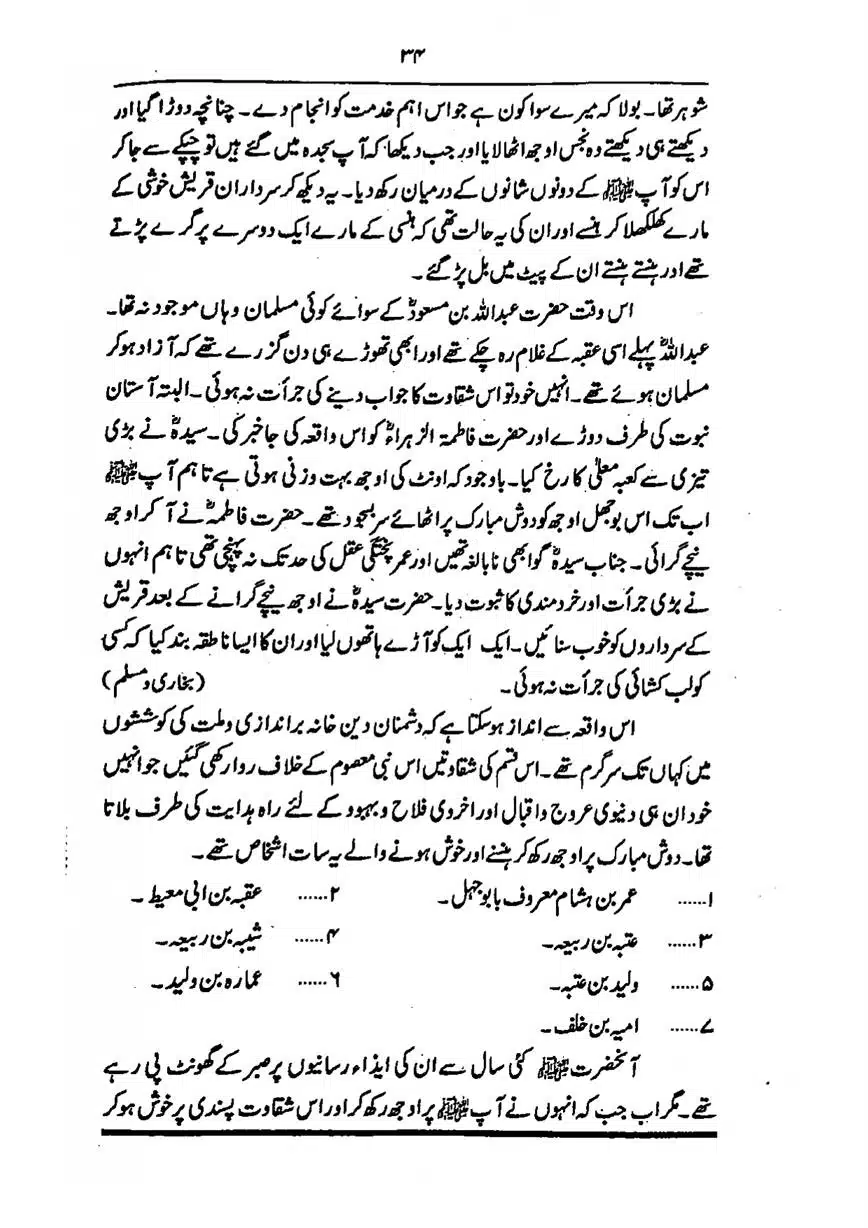 ۳۴
شوہر تھا۔ بولا کہ میرے سوا کون ہے جو اس اہم خدمت کو انجام دے۔ چنانچہ دوڑا گیا اور
دیکھتے ہی دیکھتے وہ نجس اوجھ اٹھا لایا اور جب دیکھا کہ آپ سجدہ میں گئے ہیں تو چپکے سے جا کر
اس کو آپ ﷺ کے دونوں شانوں کے درمیان رکھ دیا۔ یہ دیکھ کر سرداران قریش خوشی کے
مارے کھلکھلا کر ہنسے اور ان کی یہ حالت تھی کہ ہنسی کے مارے ایک دوسرے پر گرے پڑتے
تھے اور ہنستے ہنستے ان کے پیٹ میں بل پڑ گئے۔
اس وقت حضرت عبداللہ بن مسعودؓ کے سوائے کوئی مسلمان وہاں موجود نہ تھا۔
عبداللہؓ پہلے اسی عقبہ کے غلام رہ چکے تھے اور ابھی تھوڑے ہی دن گزرے تھے کہ آزاد ہو کر
مسلمان ہوئے تھے۔ انہیں خود تو اس شقاوت کا جواب دینے کی جرأت نہ ہوئی۔ البتہ آستان
نبوت کی طرف دوڑے اور حضرت فاطمۃ الزہراءؓ کو اس واقعہ کی جا خبر کی۔ سیدہؓ نے بڑی
تیزی سے کعبہ معلیٰ کا رخ کیا۔ باوجود کہ اونٹ کی اوجھ بہت وزنی ہوتی ہے تاہم آپ ﷺ
اب تک اس بوجھل اوجھ کو دوش مبارک پر اٹھائے سر بسجود تھے۔ حضرت فاطمہؓ نے آ کر اوجھ
نیچے گرائی۔ جناب سیدہؓ گو ابھی نابالغہ تھیں اور عمر پختگی عقل کی حد تک نہ پہنچی تھی تاہم انہوں
نے بڑی جرأت اور خرد مندی کا ثبوت دیا۔ حضرت سیدہؓ نے اوجھ نیچے گرانے کے بعد قریش
کے سرداروں کو خوب سنائیں۔ ایک ایک کو آڑے ہاتھوں لیا اور ان کا ایسا ناطقہ بند کیا کہ کسی
کو لب کشائی کی جرأت نہ ہوئی۔ (بخاری و مسلم)
اس واقعہ سے انداز ہو سکتا ہے کہ دشمنان دین خانہ براندازی و ملت کی کوششوں
میں کہاں تک سرگرم تھے۔ اس قسم کی شقاوتیں اس نبی معصوم کے خلاف روا رکھی گئیں جو انہیں
خود ان ہی دنیوی عروج و اقبال اور اخروی فلاح و بہبود کے لئے راہ ہدایت کی طرف بلاتا
تھا۔ دوش مبارک پر اوجھ رکھ کر ہنسنے اور خوش ہونے والے یہ سات اشخاص تھے۔
۱...... عمر بن ہشام معروف بابوجہل۔ ۲...... عقبہ بن ابی معیط۔
۳...... عتبہ بن ربیعہ۔ ۴...... شیبہ بن ربیعہ۔
۵...... ولید بن عتبہ۔ ۶...... عمارہ بن ولید۔
۷...... امیہ بن خلف۔
آنحضرت ﷺ کئی سال سے ان کی ایذاء رسانیوں پر صبر کے گھونٹ پی رہے
تھے۔ مگر اب جب کہ انہوں نے آپ ﷺ پر اوجھ رکھ کر اور اس شقاوت پسندی پر خوش ہو کر